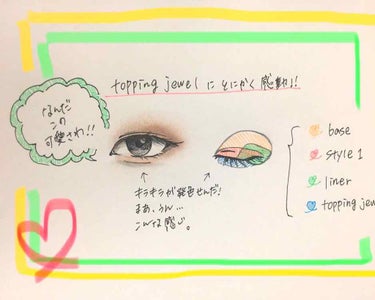 topping jewel に とにかく 感動!!
なんだ
この
可愛さわ!!
base
style 1
liner
topping jew
↑
↑
キラキラが発色せんだ!
まあ、うん…
こんな感じ。